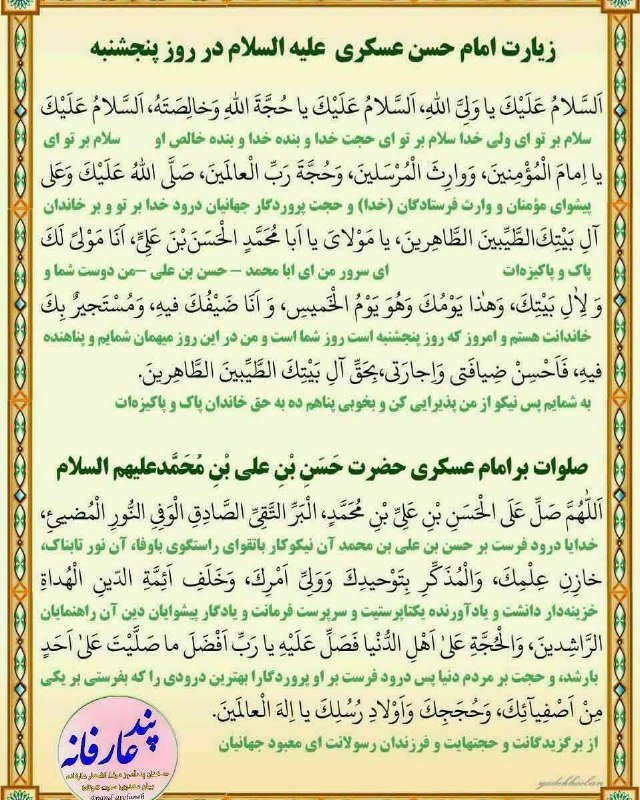 زیارت امام حسن عسکری علیه السلام در روز پنجشنبه
اَلسَّلامُ عَلَیْكَ یا وَلِیَّ اللهِ، اَلسَّلامُ عَلَیْكَ یا حُجَّةَ اللهِ وَخالِصَتَهُ، اَلسَّلامُ عَلَیْكَ
سلام بر تو ای ولی خدا سلام بر تو ای حجت خدا و بنده خدا و بنده خالص او سلام بر تو ای
یا اِمامَ الْمُؤْمِنینَ، وَوارِثَ الْمُرْسَلینَ، وَحُجَّةَ رَبِّ الْعالَمینَ، صَلَّی اللهُ عَلَیْكَ وَعَلی
پیشوای مؤمنان و وارث فرستادگان (خدا) و حجت پروردگار جهانیان درود خدا بر تو و بر خاندان
آلِ بَیْتِكَ الطَّیِّبینَ الطَّاهِرینَ، یا مَوْلایَ یا اَبا مُحَمَّدٍ الْحَسَنَ بْنَ عَلِیٍّ، اَنَا مَوْلیً لَكَ
پاک و پاکیزه‌ات ای سرور من ای ابا محمد – حسن بن علی –من دوست شما و
وَ لِآلِ بَیْتِكَ، وَهٰذا یَوْمُكَ وَهُوَ یَوْمُ الْخَمیسِ، وَ اَنَا ضَیْفُكَ فیهِ، وَمُسْتَجیرٌ بِكَ
خاندانت هستم و امروز که روز پنجشنبه است روز شما است و من در این روز میهمان شمایم و پناهنده
فیهِ، فَاَحْسِنْ ضِیافَتی وَاِجارَتی، بِحَقِّ آلِ بَیْتِكَ الطَّیِّبینَ الطَّاهِرینَ.
به شمایم پس نیکو از من پذیرایی کن و بخوبی پناهم ده به حق خاندان پاک و پاکیزه‌ات
صلوات بر امام عسکری حضرت حَسَنِ بْنِ علی بْنِ مُحَمَّدعلیهم السلام
اَللّٰهُمَّ صَلِّ عَلَی الْحَسَنِ بْنِ عَلِیِّ بْنِ مُحَمَّدٍ، الْبَرِّ التَّقِیِّ الصَّادِقِ الْوَفِیِّ النُّورِ الْمُضیئِ،
خدایا درود فرست بر حسن بن علی بن محمد آن نیکوکار باتقوای راستگوی باوفا، آن نور تابناک،
خازِنِ عِلْمِكَ، وَالْمُذَكِّرِ بِتَوْحیدِكَ وَوَلِیِّ اَمْرِكَ، وَخَلَفِ اَئِمَّةِ الدّینِ الْهُداةِ
خزینه‌دار دانشت و یادآورنده یکتاپرستیت و سرپرست فرمانت و یادگار پیشوایان دین آن راهنمایان
الرَّاشِدینَ، وَالْحُجَّةِ عَلیٰ اَهْلِ الدُّنْیا فَصَلِّ عَلَیْهِ یا رَبِّ اَفْضَلَ ما صَلَّیْتَ عَلیٰ اَحَدٍ
بارشد، و حجت بر مردم دنیا پس درود فرست بر او پروردگارا بهترین درودی را که بفرستی بر یکی
مِنْ اَصْفِیآئِكَ، وَحُجَجِكَ وَاَوْلادِ رُسُلِكَ یا اِلهَ الْعالَمینَ.
از برگزیدگانت و حجتهایت و فرزندان رسولانت ای معبود جهانیان
پند عارفانه